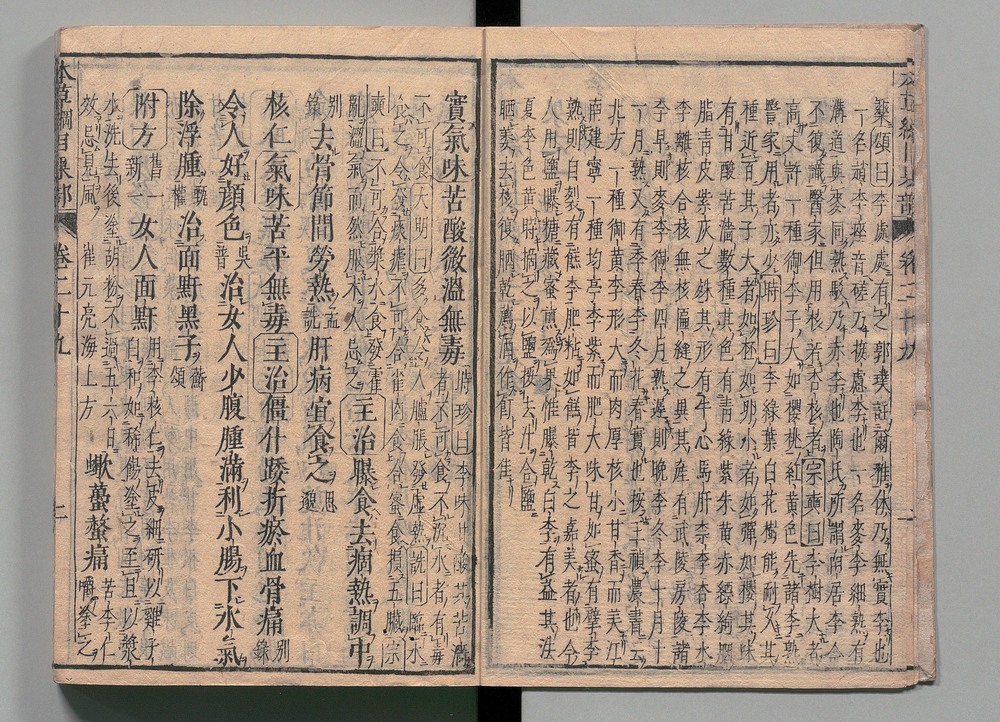 藥頌曰李處處有之郭璞註爾雅休乃無實李也
一名趙李痤音磋乃接慮李也一名麥李細熟有
溝道與麥同熟駁乃赤李也陶氏所謂南居李今
不復識醫家但用核若杏核者宗奭曰李樹大者
高丈許一種御李子大如櫻桃紅黃色先諸李熟
醫家用者亦少時珍曰李綠葉白花樹能耐久其
種近百其子大者如杯如卵小者如彈如櫻其味
有甘酸苦澀數種其色有青綠紫朱黃赤縹綺胭
脂青皮紫灰之殊其形有牛心馬肝柰李杏李水
李離核合核無核匾縫之異其產有武陵房陵諸
李早則麥李御李四月熟遲則晚李冬李十月十
一月熟又有季春李冬花春實也按王禎農書云
北方一種御黃李形大而肉厚核小甘香而美江
南建寧一種均亭李紫而肥大味甘如蜜有擘李
熟則自裂有餻李肥粘如餻皆李之嘉美者也今
人用鹽曝糖藏蜜煎為果惟曝乾白李有益其法
夏李色黃時摘之以鹽挼去汁合鹽
晒萎去核復晒乾薦酒作飣皆佳
實氣味苦酸微溫無毒時珍曰李味甘酸其苦澀者不可食不沉水者有毒
不可食大明曰多食令人臚脹發虛熱詵曰臨水
食之令發痰瘧不可合雀肉食合蜜食損五臟宗
奭曰不可合漿水食發霍
亂澀氣而然服朮人忌之主治曝食去痼熱調中
別錄去骨節間勞熱孟詵肝病宜食之思邈
核仁氣味苦平無毒主治僵仆踒折瘀血骨痛別錄
令人好顏色吳普治女人少腹腫滿利小腸下水氣
除浮腫甄權治面䵟黑子蘇頌
附方舊一新一女人面䵟用李核仁去皮細研以雞子白和如稀餳塗之至旦以漿
水洗去後塗胡粉不過五六日
效忌見風崔元亮海上方蠍蠆螫痛苦李仁嚼塗之
本草綱目果部 卷二十九 二